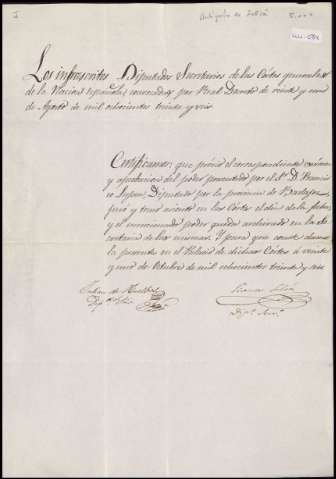 I
Autógrafo de
Los infrascritos Diputados Secretarios de las Córtes generales
de la Nacion Española, convocadas por Real Decreto de veinte y uno
de Agosto de mil ochocientos treinta y seis
Certificamos: que previo el correspondiente exámen
y aprobacion del poder presentado por el Sr. D. Francis
co Lujan, Diputado por la provincia de Badajoz,
juró y tomó asiento en las Córtes el dia de la fecha,
y el mencionado poder queda archivado en la Se
cretaria de las mismas. Y para que conste damos
la presente en el Palacio de dichas Córtes á veinte
y uno de Octubre de mil ochocientos treinta y seis
Julian de Huelbes
Dip.º Srio.
Vicente Salvá
Dip.º Srio.